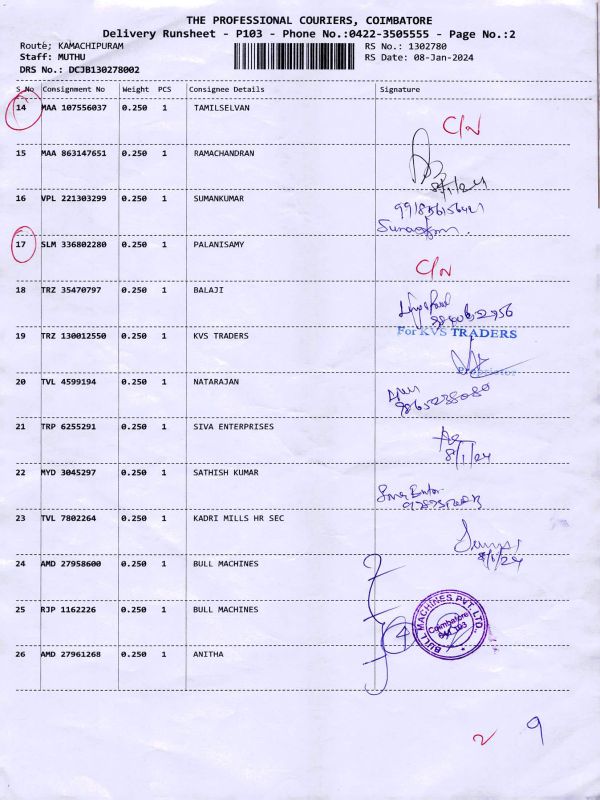 THE PROFESSIONAL COURIERS, COIMBATORE
Delivery Runsheet - P103 - Phone No.:0422-3505555 - Page No.:2
Route; KAMACHIPURAM RS No.: 1302780
Staff: MUTHU RS Date: 08-Jan-2024
DRS No.: DCJB130278002
S No Consignment No Weight PCS Consignee Details Signature
14 MAA 107556037 0.250 1 TAMILSELVAN C/N
15 MAA 863147651 0.250 1 RAMACHANDRAN 8/1/24
16 VPL 221303299 0.250 1 SUMANKUMAR
17 SLM 336802280 0.250 1 PALANISAMY C/N
18 TRZ 35470797 0.250 1 BALAJI
19 TRZ 130012550 0.250 1 KVS TRADERS For KVS TRADERS
Proprietor
20 TVL 4599194 0.250 1 NATARAJAN
21 TRP 6255291 0.250 1 SIVA ENTERPRISES 8/1/24
22 MYD 3045297 0.250 1 SATHISH KUMAR
23 TVL 7802264 0.250 1 KADRI MILLS HR SEC 8/1/24
24 AMD 27958600 0.250 1 BULL MACHINES
25 RJP 1162226 0.250 1 BULL MACHINES 4 BULL MACHINES PVT. LTD. Coimbatore 641 103
26 AMD 27961268 0.250 1 ANITHA
2 9